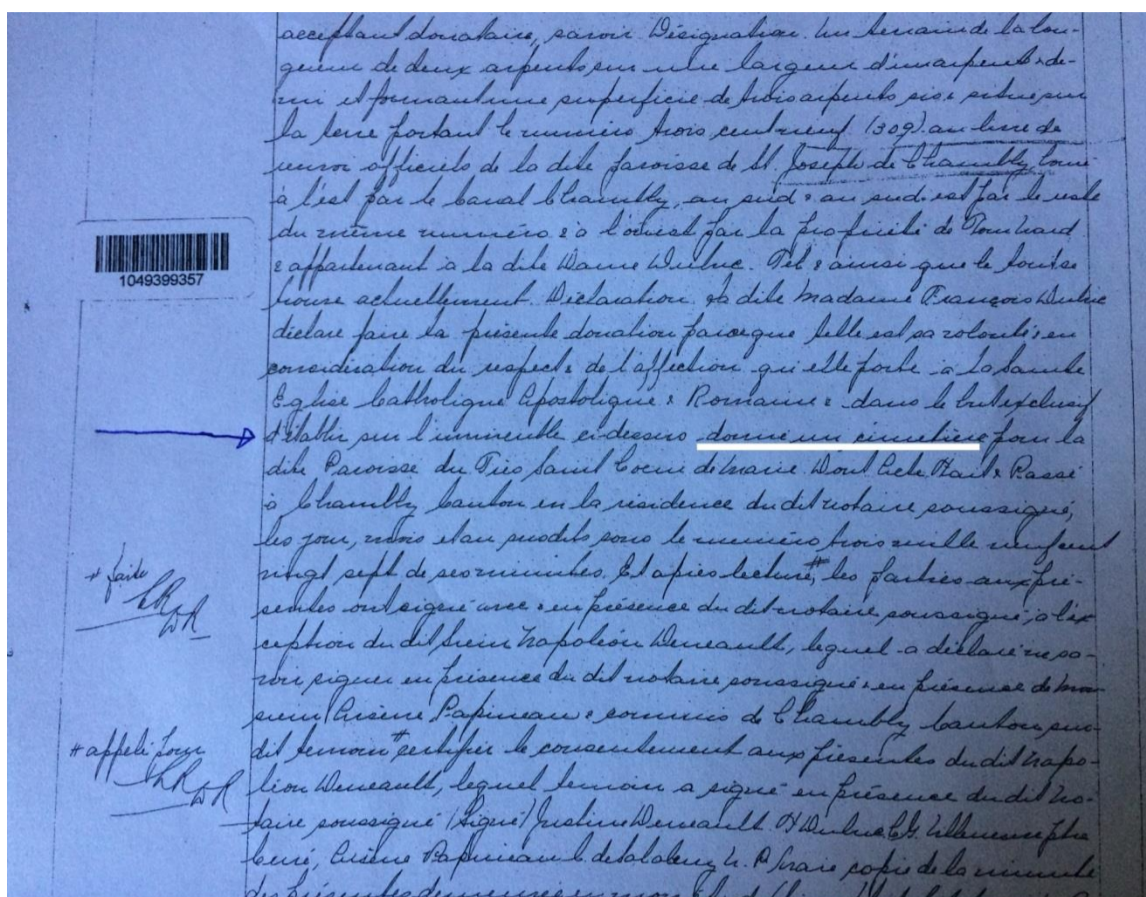 acceptant donataire, savoir. Désignation. Un terrain de la lon-
gueur de deux arpents sur une largeur d'un arpent & de-
mi et formant une superficie de trois arpents sis & situé sur
la terre portant le numéro trois cent neuf (309) au livre de
renvoi officiels de la dite paroisse de St. Joseph de Chambly borné
à l'est par le Canal Chambly, au sud & au sud-est par le reste
du même numéro & à l'ouest par la propriété de
& appartenant à la dite Dame Duluc. Tel & ainsi que le tout se
trouve actuellement. Déclaration. La dite Madame François Duluc
déclare faire la présente donation parceque telle est sa volonté & en
considération du respect & de l'affection qu'elle porte à la Sainte
Eglise Catholique Apostolique & Romaine & dans le but exclusif
d'établir sur l'immeuble ci-dessus donné un cimetière pour la
dite Paroisse du Très Saint Coeur de Marie. Dont Acte Fait & Passé
à Chambly Canton en la résidence du dit notaire soussigné,
les jour, mois et an susdits sous le numéro trois mille neuf cent
vingt sept de ses minutes. Et après lecture,# les parties aux pré-
sentes ont signé avec & en présence du dit notaire soussigné, à l'ex
ception du dit sieur Napoléon Deneault, lequel a déclaré ne sa-
voir signer en présence du dit notaire soussigné & en présence de Mon
sieur Arsène Papineau & commis de Chambly Canton sus-
dit temoin # certifier le consentement aux présentes du dit Napo-
léon Deneault, lequel temoin a signé en présence du dit No-
taire soussigné (Signé) Justine Deneault. Ptre
Curé, Arsène Papineau N. P. Vraie copie de la minute
des présentes demeurée en mon
1049399357
# faite
# appelé pour